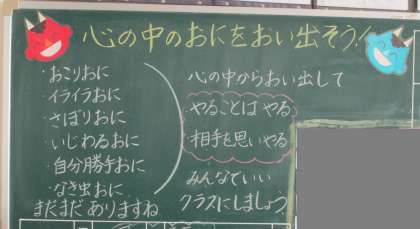 心の中のおにをおい出そう!!
・おこりおに
・イライラおに
・さぼりおに
・いじわるおに
・自分勝手おに
・なき虫おに
まだまだありますね
心の中からおい出して
やることは やる
相手を思いやる
みんなでいい
クラスにしましょう